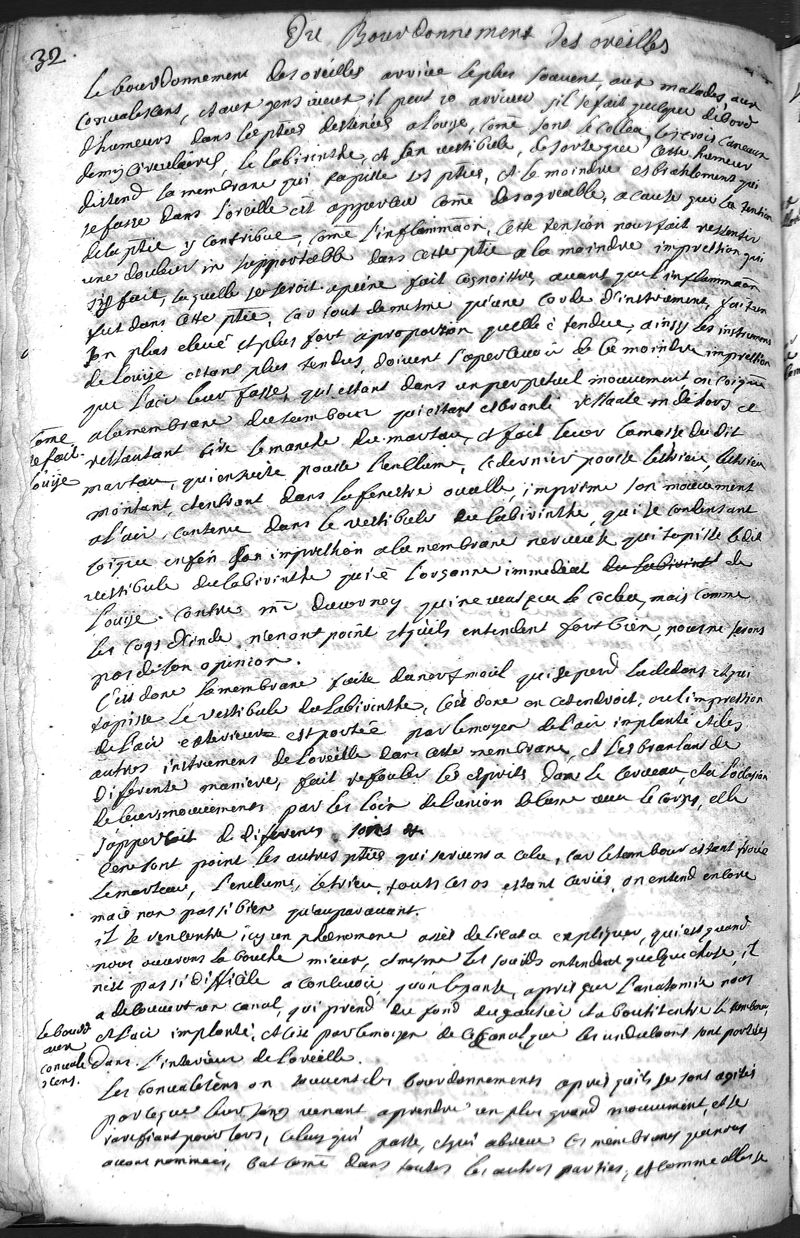 32
Du Bourdonnement des oreilles
Le bourdonnement des oreilles arrive le plus souvent, aux malades, aux
convalescens, et aux gens vieux, il peut arriver s'il se fait quelque débord
d'humeurs dans les pties destinées a l'ouije, come sont le coclea, les trois caneaux
demij circulaires, le labirinthe, et son vestibule, de sorte que cette humeur
distend la membrane qui tapisse ces pties, et le moindre esbranlement qui
se fasse dans l'oreille est apperceu come desagreable, a cause que la tension
de la ptie y contribue, come l'inflammaon, cette tension nous fait ressentir
une douleur insupportable dans cette ptie a la moindre impression qui
s'y fait, laquelle se seroit a peine fait cognoittre, avant que l'inflammaon
fut dans cette ptie, car tout de mesme qu'une corde d'instrument, fait un
son plus elevé et plus fort a proportion quelle è tendue, ainsy les instrumens
de l'ouije estans plus tendus, doivent s'apercevoir de la moindre impression
que l'air leur fasse, qui estant dans un perpetuel mouvement on
a la membrane du tambour qui estant esbranlé ressaute en dehors et
come
se fait
l'ouije
ressautant tire le manche du marteau, et fait la masse du dit
marteau, qui en suite pousse l'enclume, ce dernier pousse l'estrieu, l'estrieu
montant et entrant dans la fenestre ovalle, imprime son mouvement
a l'air contenu dans le vestibule du labirinthe, qui se condensant
coigne enfin son impression a la membrane nerveuse qui tapisse le dit
vestibule du labirinthe qui è l'organne immediat du labirint de
l'ouije. contre mr duverney qui ne veut que le coclea, mais comme
les coqs d'inde n'en ont point et qu'ils entendent fort bien, nous ne serons
pas de son opinion.
C'est donc la membrane faite du nerf moul qui se perd la dedans et qui
tapisse le vestibule du labirinthe, c'est donc en cet endroit, ou l'impression
de l'air exterieur est portée par le moyen de l'air implanté et des
autres instrumens de l'oreille dans cette membrane, et l'esbranlant de
diferente maniere, fait refouler les esprits dans le cerveau, et a l'occasion
de leurs mouvements par les loix de l'union de l'ame avec le corps, elle
s'apperçoit de diferents sons
Ce ne sont point les autres pties qui servent a cela, car le tambour estant troué
le marteau, l'enclume, l'estrieu, touts ces os estant cariés, on entend encore
mais non pas si bien qu'auparavant.
il se rencontre icy un phoenomene assés delicat a expliquer, qui est quand
nous ouvrons la bouche mieux, et mesme les sourds entendent quelque chose, il
n'est pas si dificile a concevoir qu'on le pense, apres que l'anatomie nous
a decouvert un canal, qui prend du fond du gausier et aboutit entre le tambour,
et l'air implanté, et c'est par le moyen de ce canal que les undulaons sont portées
dans l'interieur de l'oreille.
Le bourd
aux
convale
scens.
Les convalescens on souvent des bourdonnements apres qu'ils se sont agités
parceque leur sang venant a prendre un plus grand mouvement, et se
rarefiant pour lors, celuy qui passe, et qui abreuve les membranes que nous
avons nommées, bat come dans toutes les autres parties, et comme elles se